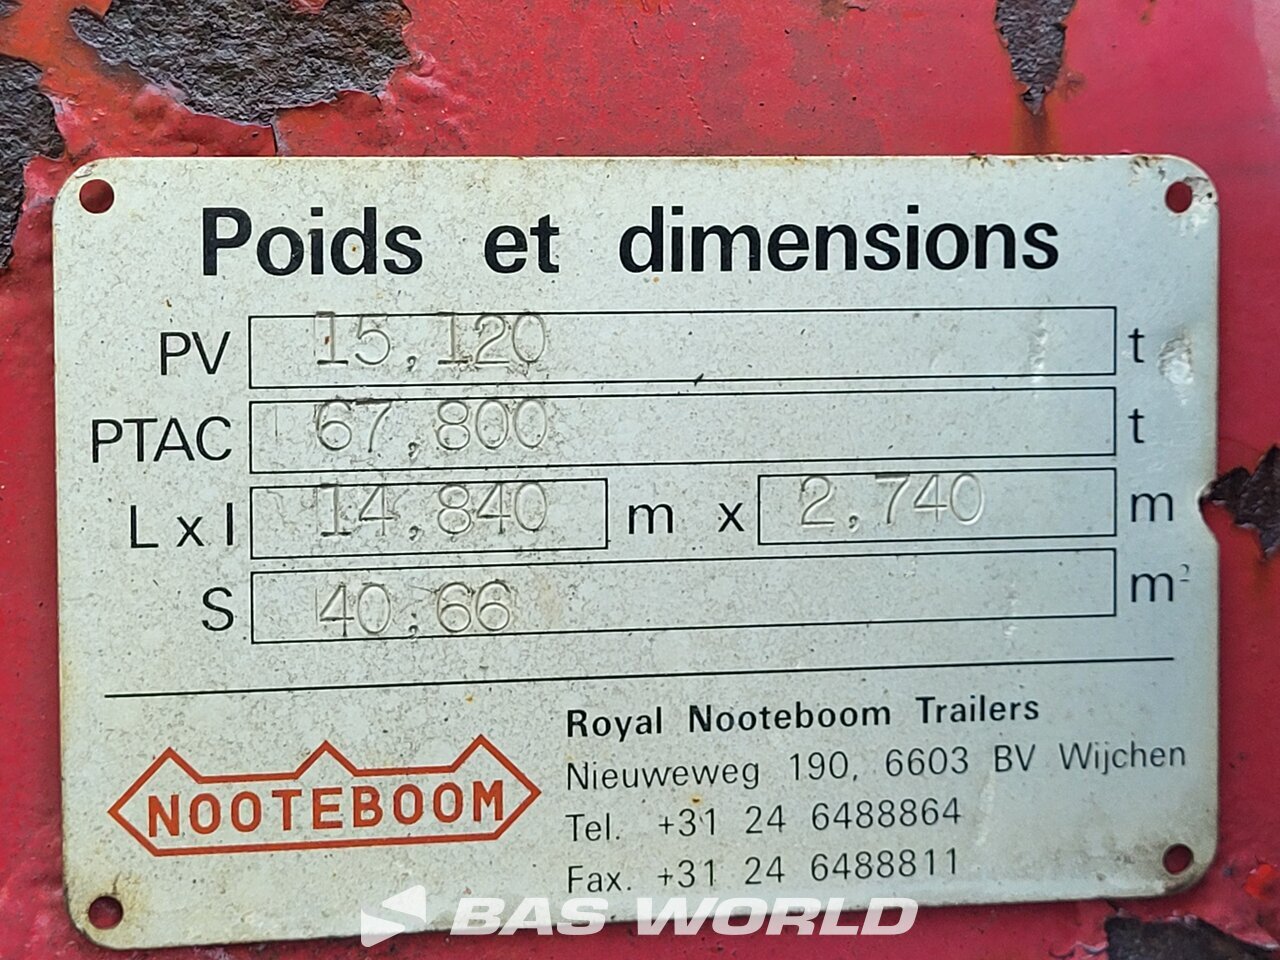 Poids et dimensions
PV 15,120 t
PTAC 67,800 t
L x l 14,840 m x 2,740 m
S 40,66 m²
NOOTEBOOM
Royal Nooteboom Trailers
Nieuweweg 190, 6603 BV Wijchen
Tel. +31 24 6488864
Fax. +31 24 6488811
BAS WORLD